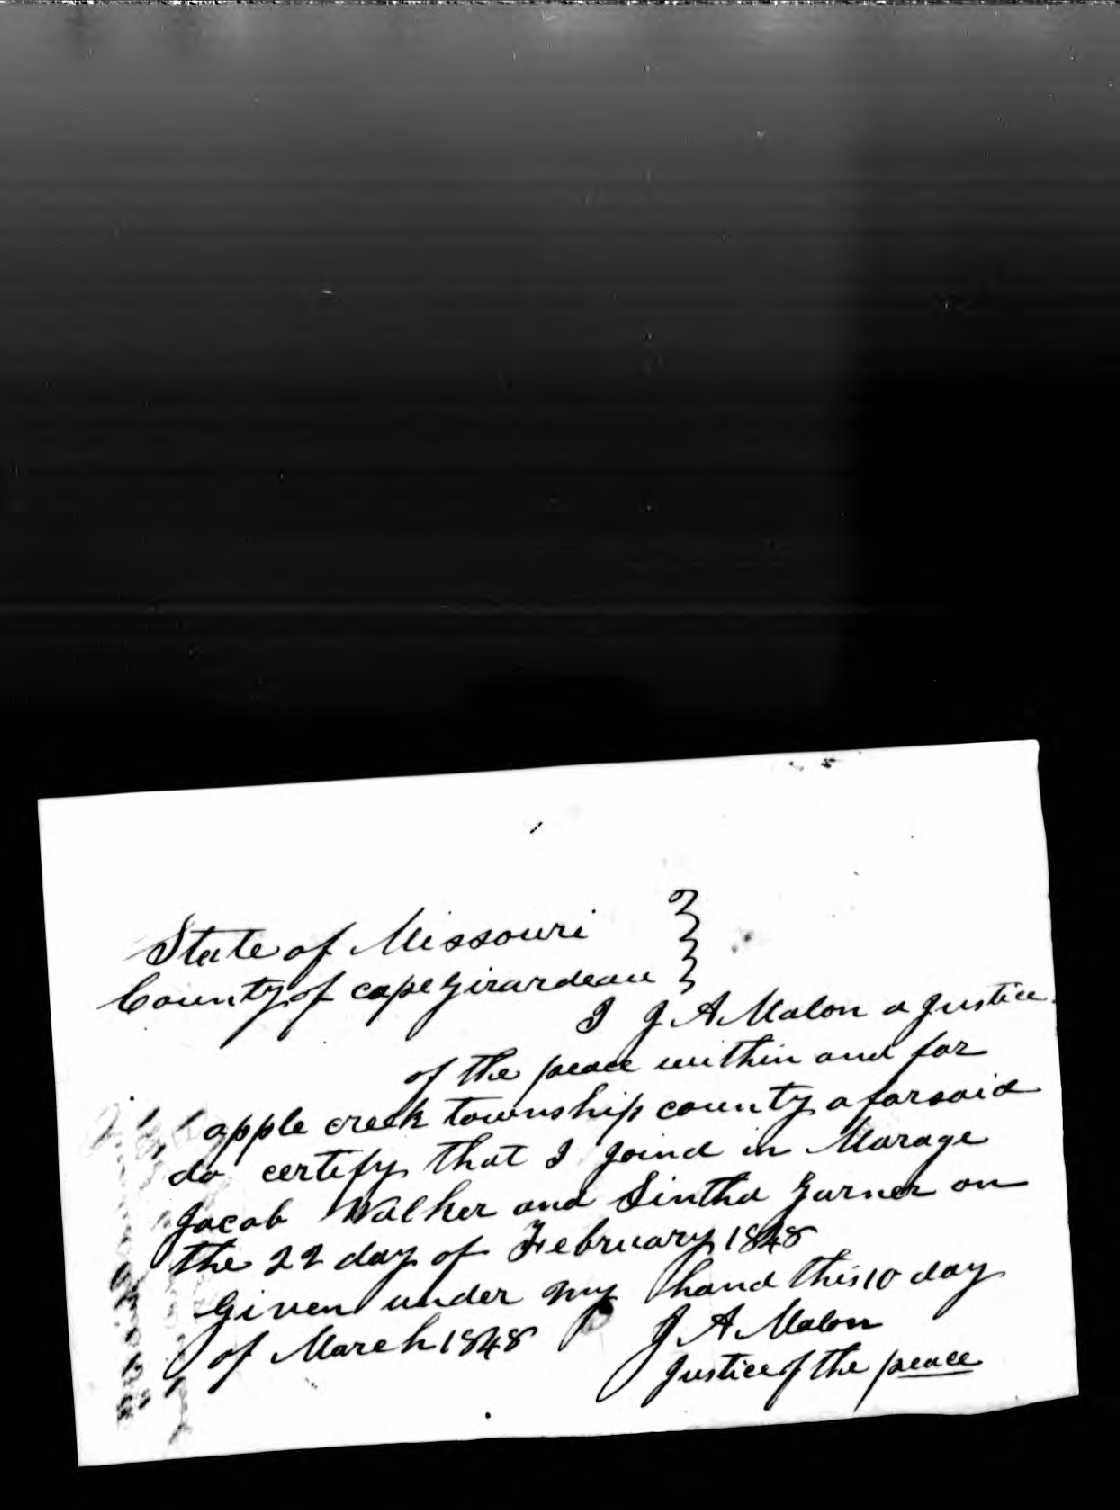 State of Missouri }
County of cape girardeau }
I J A Malon a Justice
of the peace within and for
apple creek township county aforsaid
do certify that I joind in Marage
Jacob Walker and Sintha Garner on
the 22 day of February 1848
Given under my hand this 10 day
of March 1848 J A Malon
Justice of the peace